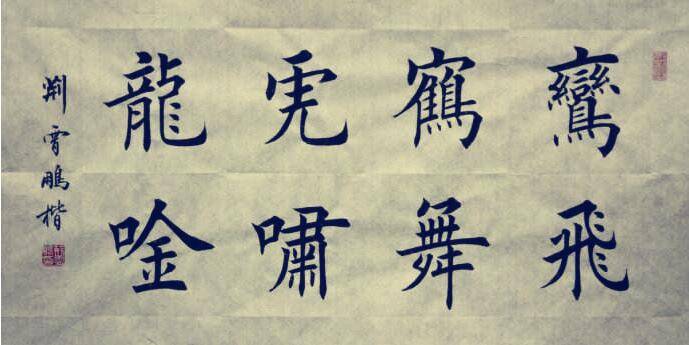 鸞飛
鶴舞
虎嘯
龍唫
荆霄鵬楷